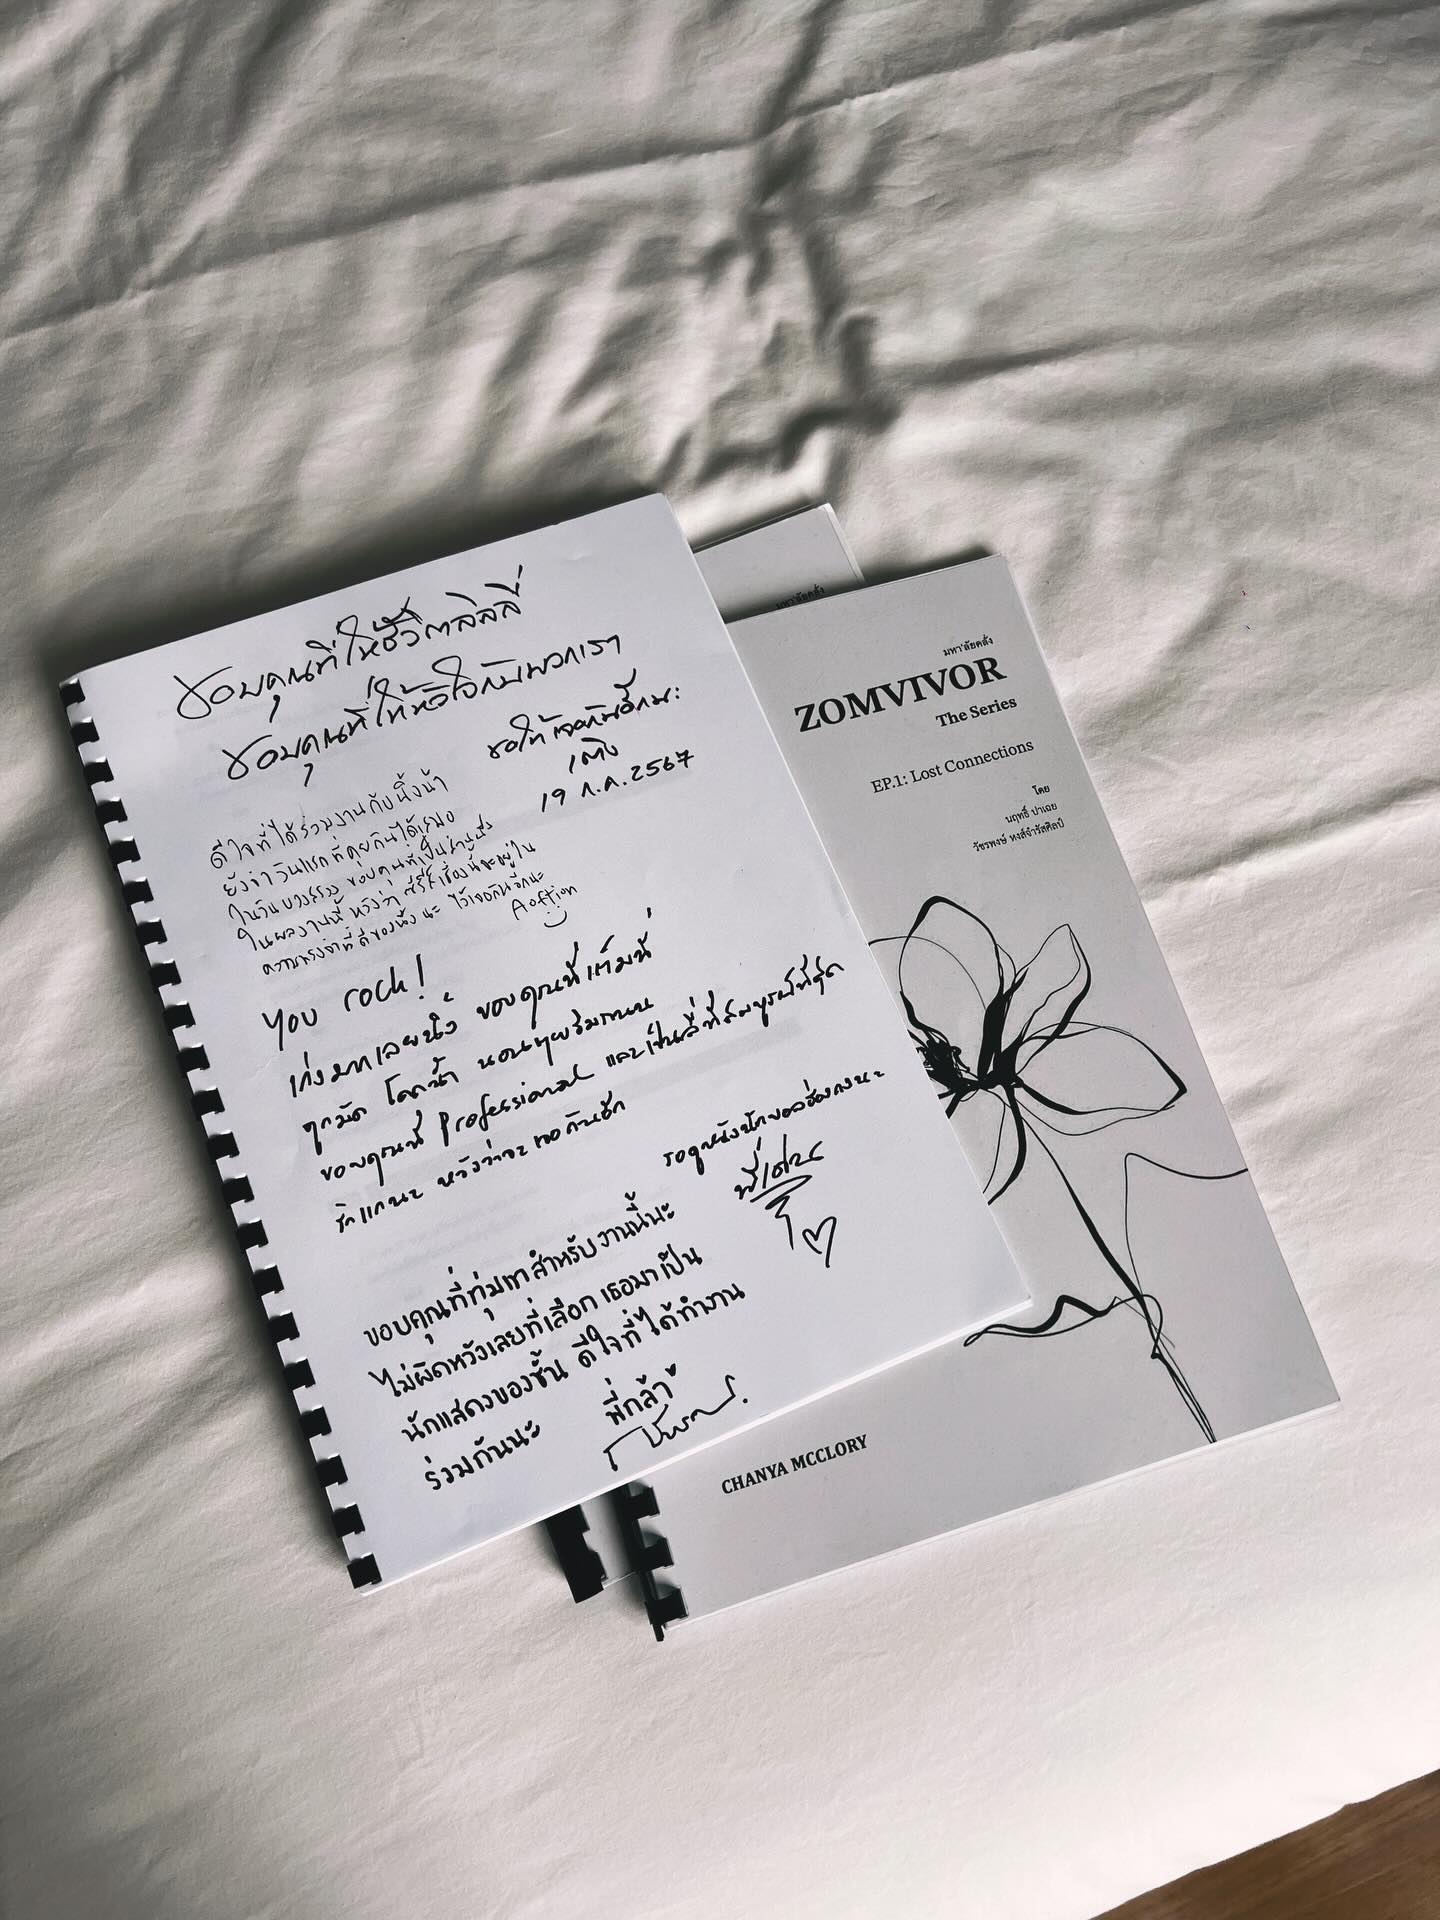 ขอบคุณที่ให้ชีวิตลิลลี่
ขอบคุณที่ให้หัวใจกับพวกเรา
ขอให้เจอกันอีกนะ
เติ้ง
19 ก.ค. 2567
ดีใจที่ได้ร่วมงานกับนิ้งน้า
ยังจำวันแรกที่คุยกันได้เสมอ
ในวันบวงสรวง ขอบคุณที่เป็นส่วนนึง
ในผลงานนี้ หวังว่าซีรีส์เรื่องนี้จะอยู่ใน
ความทรงจำที่ดีของนิ้งนะ ไว้เจอกันอีกนะ
Aoftion
You rock!
เก่งมากเลยนิ้ง ขอบคุณที่เต็มที่
ทุกนัด โคตร
ขอบคุณที่ Professional และเป็น ที่สมบูรณ์ที่สุด
รักแกนะ หวังว่าจะเจอกันอีก
รอดูหนังนักบอลของแกนะ
ขอบคุณที่ทุ่มเทสำหรับงานนี้นะ
ไม่ผิดหวังเลยที่เลือกเธอมาเป็น
นักแสดงของชั้น ดีใจที่ได้ทำงาน
ร่วมกันนะ พี่กล้า
มหา'ลัยคลั่ง
มหา'ลัยคลั่ง
ZOMVIVOR
The Series
EP.1: Lost Connections
โดย
นฤทธิ์ ปาเฉย
วัชรพงษ์ หงส์จำรัสศิลป์
CHANYA MCCLORY